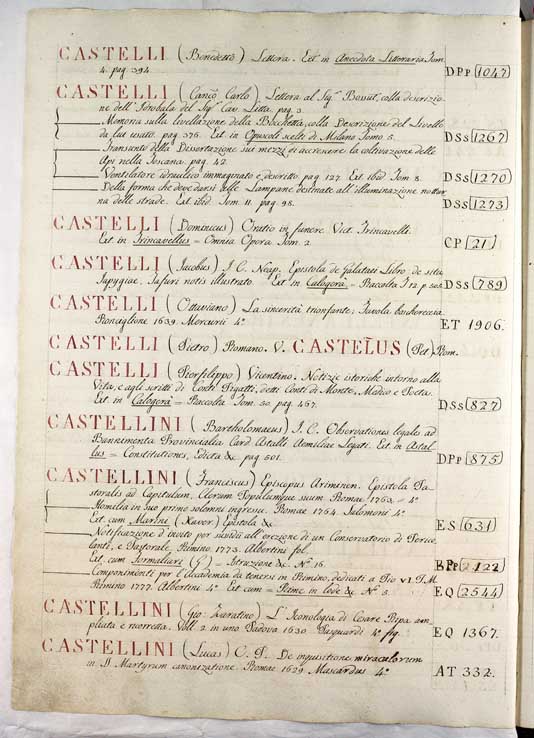 CASTELLI (Benedetto) Lettera. Ext. in Anecdota Litteraria Tom.
4. pag. 394. DPp 1047
CASTELLI (Canco Carlo) Lettera al Sig. Bossut, colla descrizio
ne dell' del Sig. Cav. Litta. pag. 3.
Memoria sulla livellazione della Bocchetta, colla Descrizione del Livello
da lui usato. pag. 376. Ext. in Opuscoli scelti di Milano Tomo 5. DSs 1267
Transunto della Dissertazione sui mezzi di accrescere la coltivazione delle
Api nella Toscana. pag. 42.
Ventilatore idraulico immaginato e descritto pag. 127. Ext. ibid. Tom. 8. DSs 1270
Della forma che deve darsi alle Lampane destinate all' illuminazione nottur
na delle strade. Ext. ibid. Tom. 11. pag. 98. DSs 1273
CASTELLI (Dominicus) Oratio in funere Vict. Trincavelli.
Ext. in Trincavellus = Omnia Opera Tom. 2. CP 21
CASTELLI (Jacobus) J. C. Neap. Epistola de Galataei Libro, de situ
Japygiae, Tafuri notis illustrato. Ext. in Calogerà = Raccolta T. 12. p. DSs 789
CASTELLI (Ottaviano) La sincerità trionfante; Favola boscherecia
Ronciglione 1639. Mercurii 4° ET 1906.
CASTELLI (Pietro) Romano. V. CASTELLUS (Pet.) Rom.
CASTELLI (Pierfilippo) Vicentino. Notizie istoriche intorno alla
Vita, e agli scritti di Conti Pigatti, detti Conti di Monte, Medico e Poeta.
Ext. in Calogerà = Raccolta Tom. 50. pag. 467. DSs 827
CASTELLINI (Bartholomaeus) J. C. Observationes legales ad
Bannimenta Provincialia Card. Astalli Aemiliae Legati. Ext. in Astal
lus = Constitutiones, Edicta &c. pag. 501. DPp 875
CASTELLINI (Franciscus) Episcopus Ariminen. Epistola Pa
storalis ad Capitulum, Clerum Populumque suum Romae 1763 = 4°
Homelia in suo primo solemni ingressu. Romae 1764. Salomoni 4°
Ext. cum Marini (Xaver) Epistola &c. ES 631
Notificazione d'invito per sussidi all' erezione di un Conservatorio di Perico
lanti, e Pastorale. Rimino 1773. Albertini fol.
Ext. cum Formaliari (G.) = Istruzione &c. N° 16. BPp 2122
Componimenti per l' Accademia da tenersi in Rimino, dedicati a Pio VI. P. M.
Rimino 1777. Albertini 4° Ext. cum = Rime in lode &c. N° 5. EQ 2544
CASTELLINI (Gio: Zaratino) L' Iconologia di Cesare Ripa am
pliata e ricorretta. Voll. 2. in uno Padova 1630. Pasquardi 4° fig. EQ 1367.
CASTELLINI (Lucas) O. P. De inquisitione miraculorum
in SS. Martyrum canonizatione. Romae 1629. Mascardus 4° AT 332.